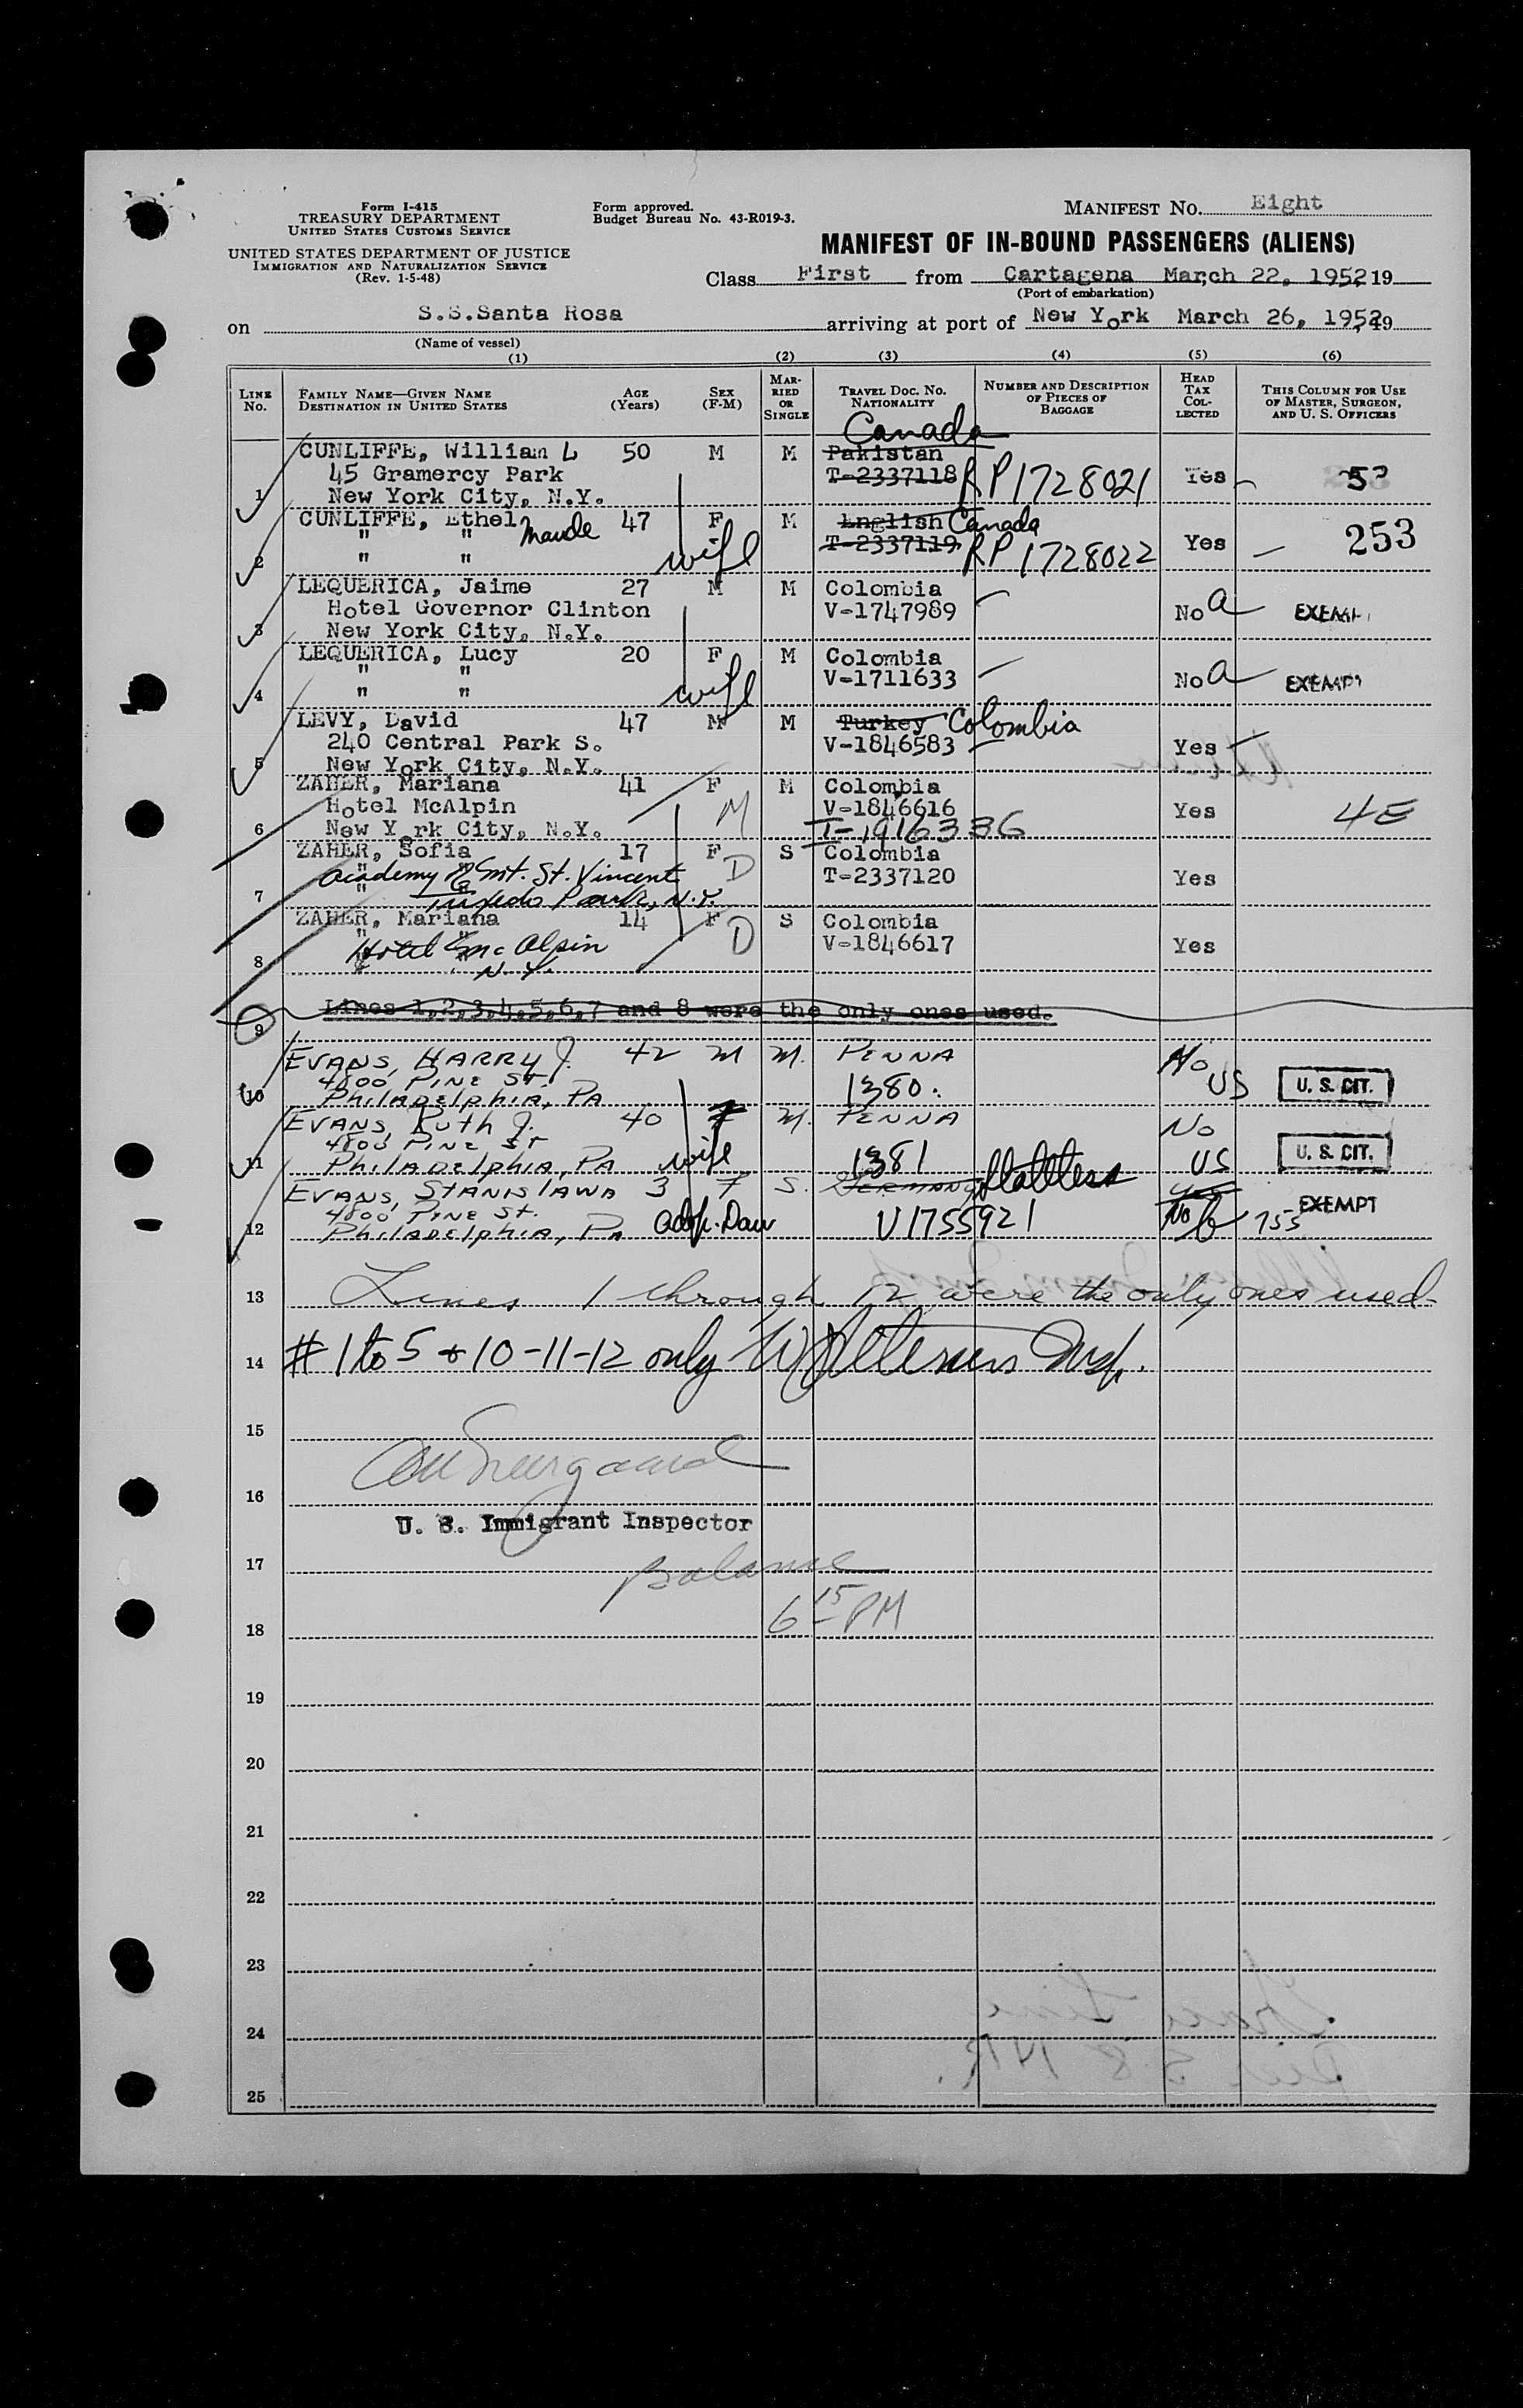 Form I-415
TREASURY DEPARTMENT
UNITED STATES CUSTOMS SERVICE
UNITED STATES DEPARTMENT OF JUSTICE
IMMIGRATION AND NATURALIZATION SERVICE
(Rev. 1-5-48)
Form approved.
Budget Bureau No. 43-R019-3.
MANIFEST No. Eight
MANIFEST OF IN-BOUND PASSENGERS (ALIENS)
Class First from Cartagena March 22, 1952, 19
(Port of embarkation)
on S.S.Santa Rosa arriving at port of New York March 26, 1952, 19
(Name of vessel)
(1) (2) (3) (4) (5) (6)
LINE No. FAMILY NAME—GIVEN NAME DESTINATION IN UNITED STATES AGE (Years) SEX (F-M) MARRIED OR SINGLE TRAVEL DOC. NO. NATIONALITY NUMBER AND DESCRIPTION OF PIECES OF BAGGAGE HEAD TAX COLLECTED THIS COLUMN FOR USE OF MASTER, SURGEON, AND U. S. OFFICERS
Canada
CUNLIFFE, William L 50 M M Pakistan
45 Gramercy Park T-2337118 RP1728021 Yes 53
1 New York City, N.Y.
CUNLIFFE, Ethel Maude 47 F M English Canada
" " T-2337119 RP1728022 Yes 253
2 " " wife
LEQUERICA, Jaime 27 M M Colombia
Hotel Governor Clinton V-1747989 No a EXEMPT
3 New York City, N.Y.
LEQUERICA, Lucy 20 F M Colombia
" " V-1711633 No a EXEMPT
4 " " wife
LEVY, David 47 M M Turkey Colombia
240 Central Park S. V-1846583 Yes
5 New York City, N.Y.
ZAHER, Mariana 41 F M Colombia
Hotel McAlpin M V-1846616 Yes 4E
6 New York City, N.Y. I-1916336
ZAHER, Sofia 17 F S Colombia
Academy Mt. St. Vincent D T-2337120 Yes
7 Tuxedo Park, N.Y.
ZAHER, Mariana 14 F S Colombia
Hotel McAlpin D V-1846617 Yes
8 N.Y.
9 Lines 1,2,3,4,5,6,7 and 8 were the only ones used.
EVANS, HARRY J. 42 M M. PENNA No
4800 PINE ST. 1380. US U. S. CIT.
10 PhilADelphIA, PA
EVANS, Ruth J. 40 F M. PENNA No
4800 PINE ST U. S. CIT.
11 PhilADelphIA, PA wife 1381 US
EVANS, STANISlAWA 3 F S. GERMANY Stateless yes
4800 PINE St. EXEMPT
12 PhilADelphIA, PA adop. Dau V1755921 No b 755
13 Lines 1 through 12 were the only ones used
14 # 1 to 5 & 10-11-12 only Insp.
15
16
U. S. Immigrant Inspector
17 Balance
18 6 15 PM
19
20
21
22
23
24
25